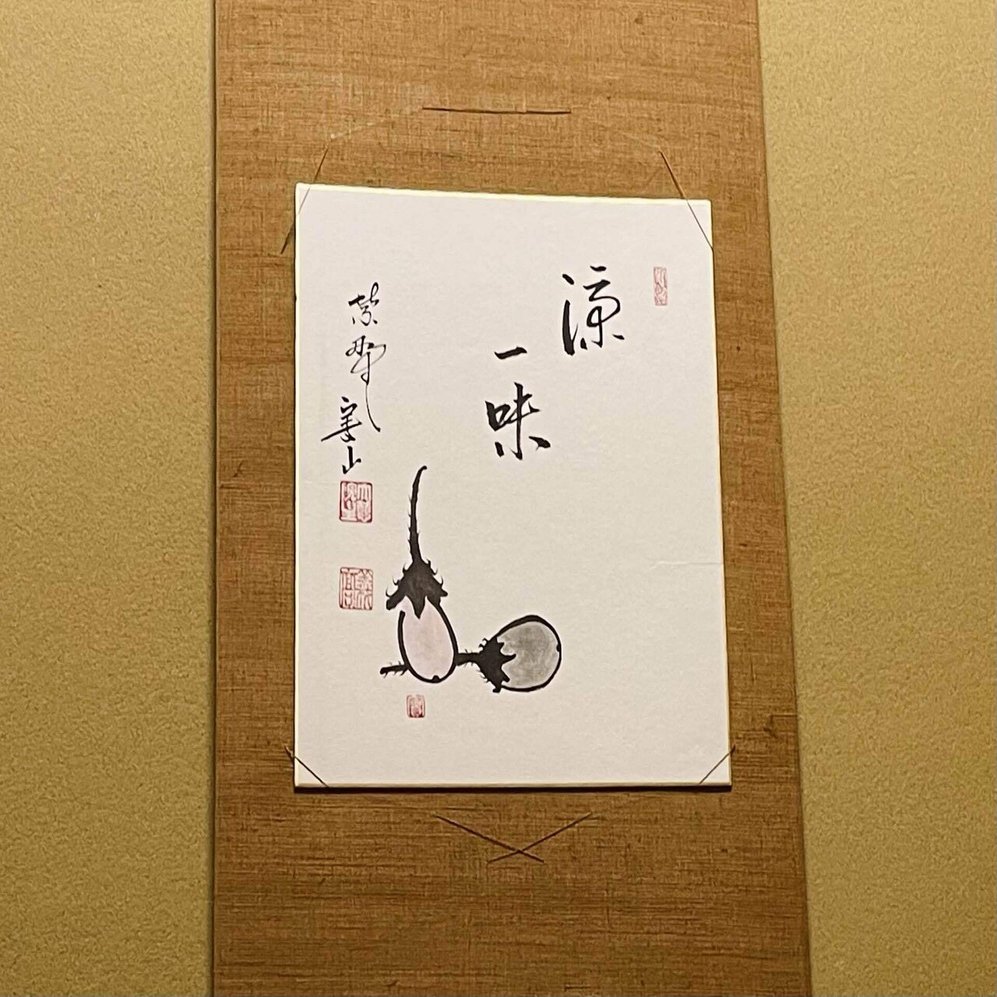 涼
一味
紫野
山